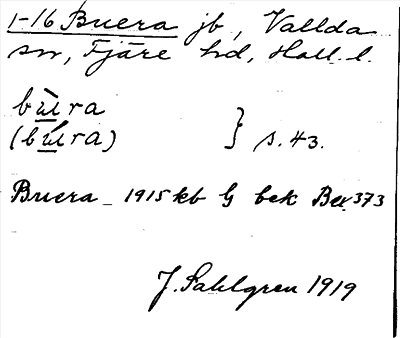 1-16 Buera jb, Vallda
sn, Fjäre hd, Hall. l.
bùra
(búra) } s. 43.
Buera - 1915 kb G bek Bev. 373
J. Sahlgren 1919